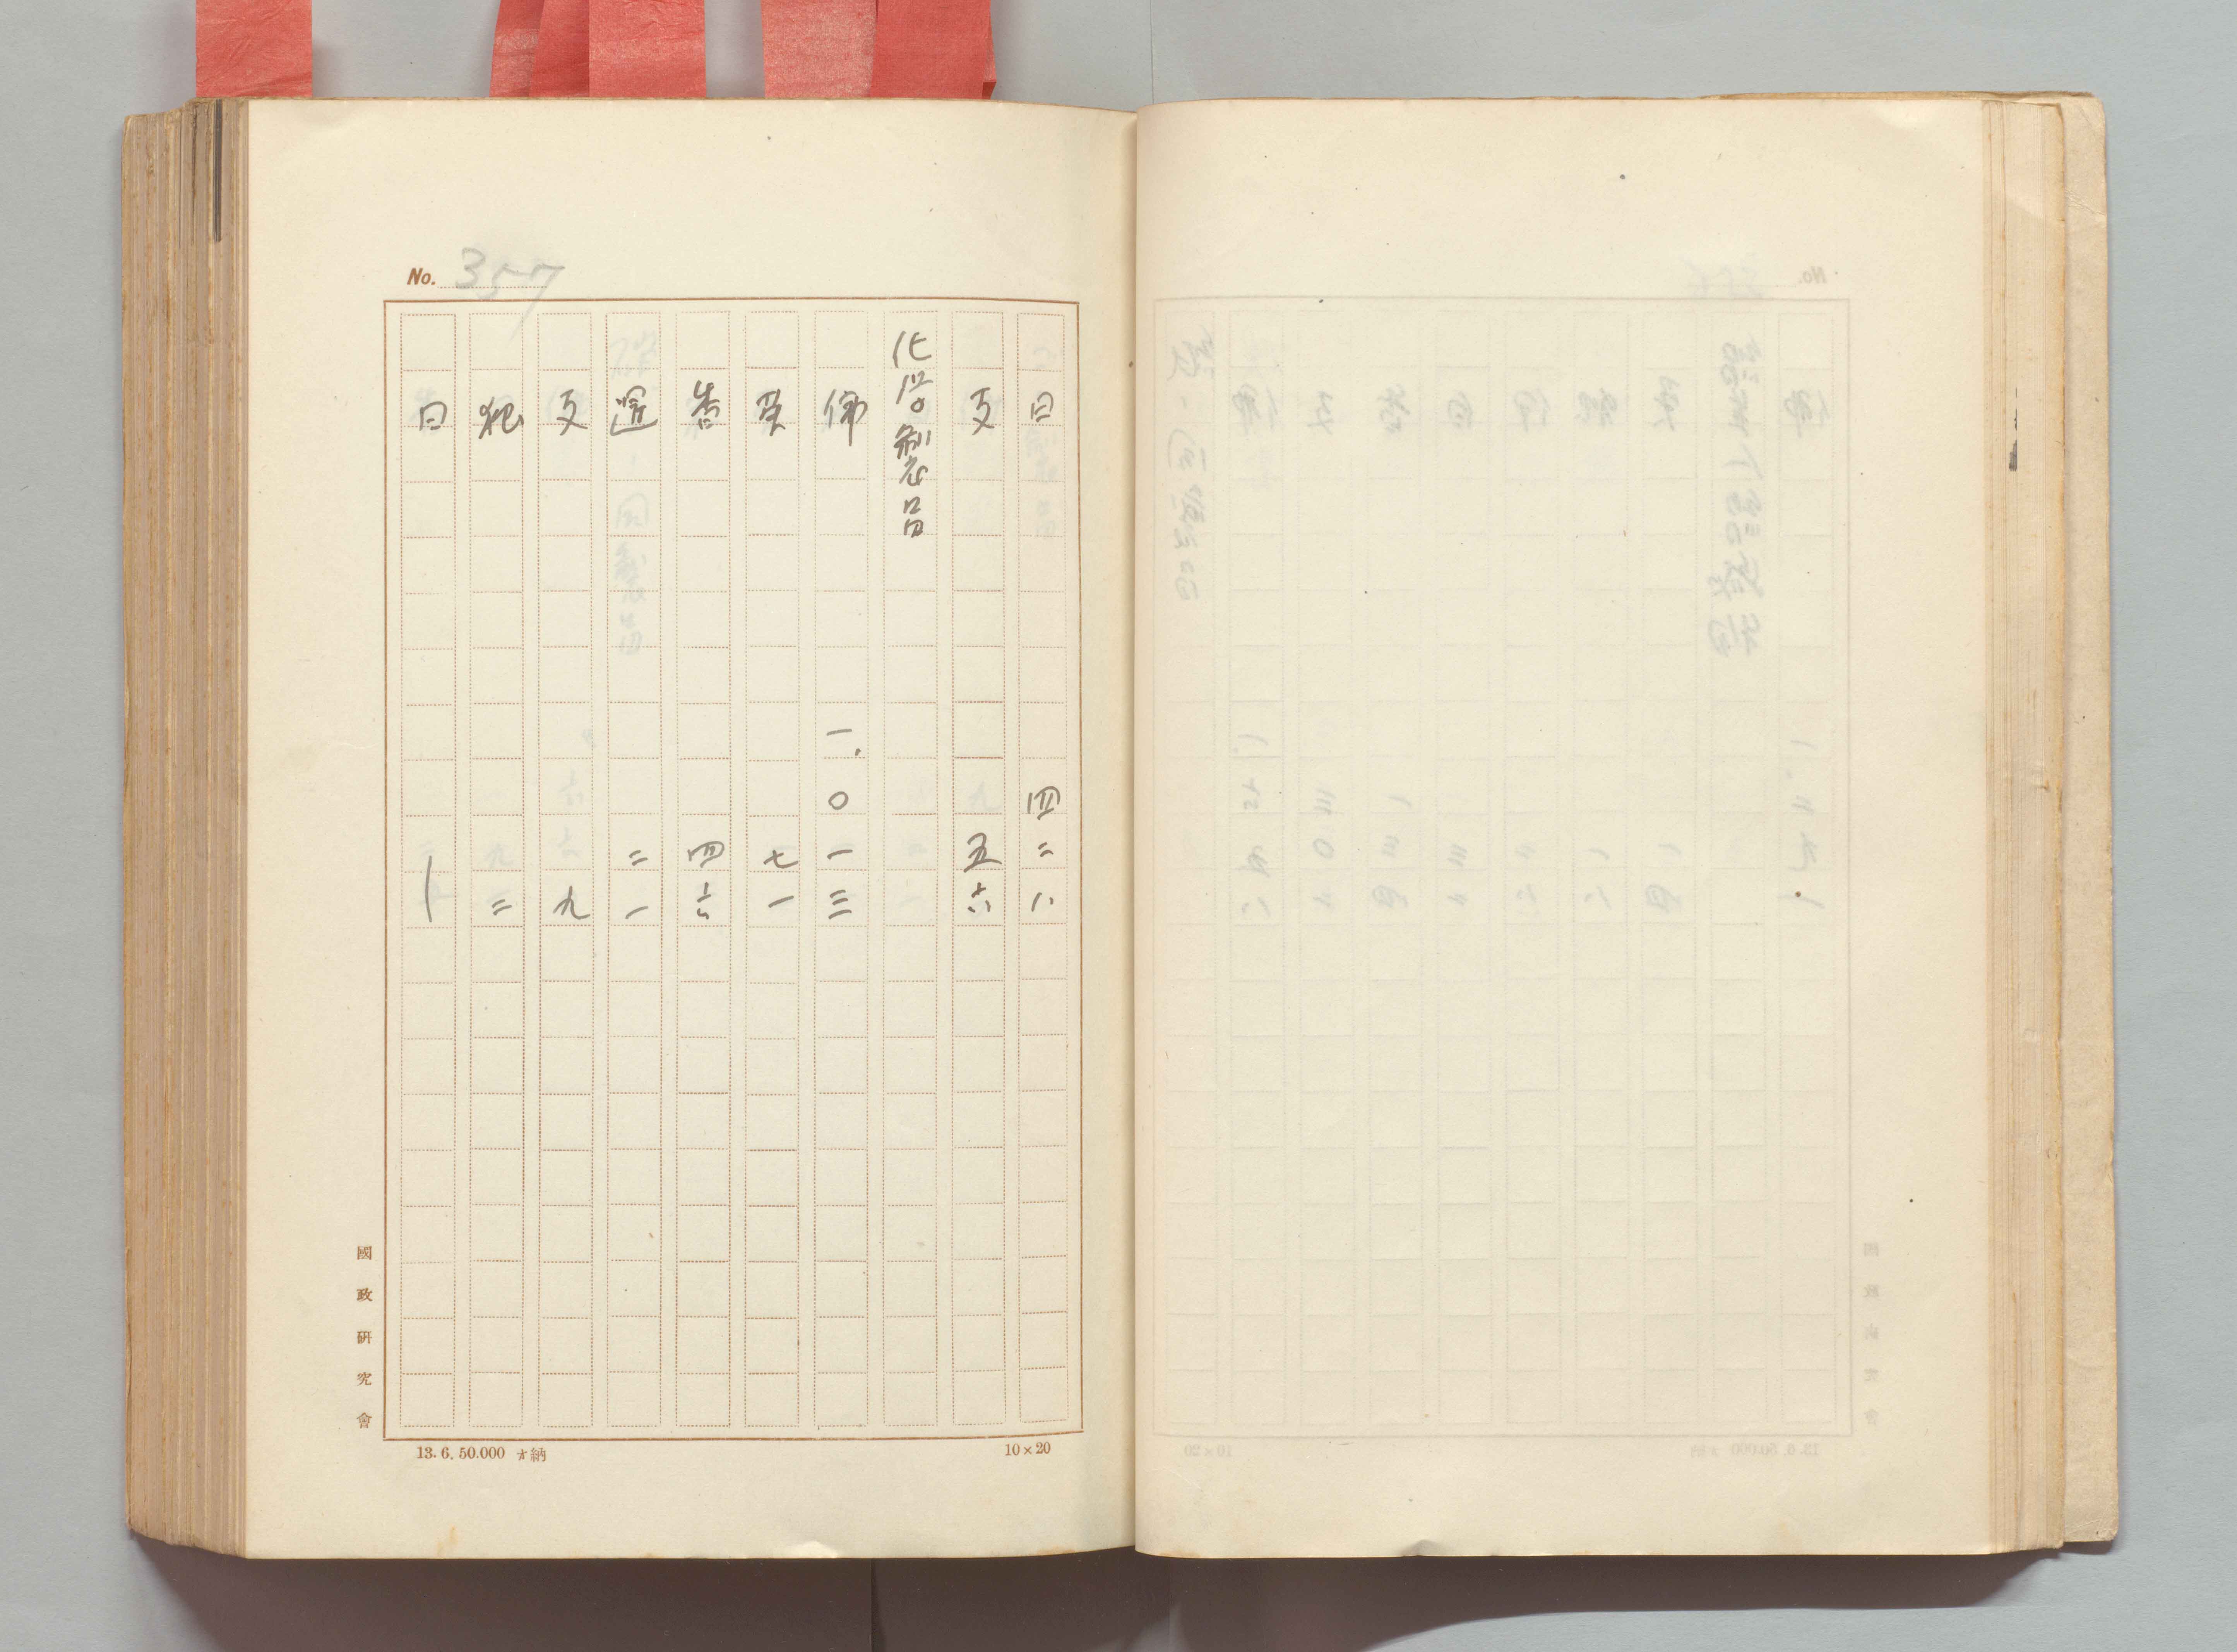 No. 357
日 四二八
支 五六
化学製品
佛 一.〇一三
英 七一
香 四六
暹 二一
支 九
二
日 ー
國政研究會
13. 6. 50.000 オ納
10×20